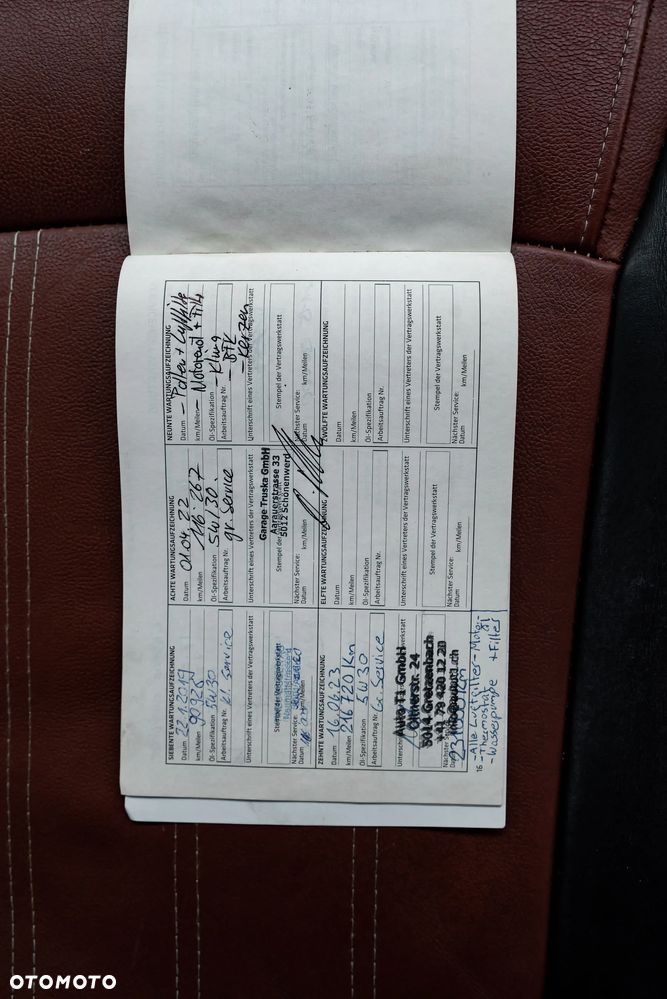 SIEBENTE WARTUNGSAUFZEICHNUNG
Datum 22.1.2019
km/Meilen
Öl-Spezifikation 5W30
Arbeitsauftrag Nr. kl. Service
Unterschrift eines Vertreters der Vertragswerkstatt
Stempel der Vertragswerkstatt
Nächster Service:
Datum
km/Meilen
ACHTE WARTUNGSAUFZEICHNUNG
Datum 01.04.22
km/Meilen 176.267
Öl-Spezifikation 5W30.
Arbeitsauftrag Nr. gr. Service
Unterschrift eines Vertreters der Vertragswerkstatt
Garage Truska GmbH
Aarauerstrasse 33
5012 Schönenwerd
Stempel der
Nächster Service:
Datum
km/Meilen
NEUNTE WARTUNGSAUFZEICHNUNG
Datum - Pollen + Luftfilter
km/Meilen - Motorenöl + Filter
Öl-Spezifikation
Arbeitsauftrag Nr.
- Kerzen
Unterschrift eines Vertreters der Vertragswerkstatt
Stempel der Vertragswerkstatt
Nächster Service:
Datum
km/Meilen
ZEHNTE WARTUNGSAUFZEICHNUNG
Datum 16.06.23
km/Meilen 216720 km
Öl-Spezifikation 5W30
Arbeitsauftrag Nr. Gr. Service
Auto T1 GmbH
Oltnerstr. 24
5014 Gretzenbach
+41 79 420 12 20
Datum
- Alle Luftfilter - Motor-
öl + Filter
- Thermostat
- Wasserpumpe
ELFTE WARTUNGSAUFZEICHNUNG
Datum
km/Meilen
Öl-Spezifikation
Arbeitsauftrag Nr.
Unterschrift eines Vertreters der Vertragswerkstatt
Stempel der Vertragswerkstatt
Nächster Service:
Datum
km/Meilen
ZWÖLFTE WARTUNGSAUFZEICHNUNG
Datum
km/Meilen
Öl-Spezifikation
Arbeitsauftrag Nr.
Unterschrift eines Vertreters der Vertragswerkstatt
Stempel der Vertragswerkstatt
Nächster Service:
Datum
km/Meilen
16
OTOMOTO